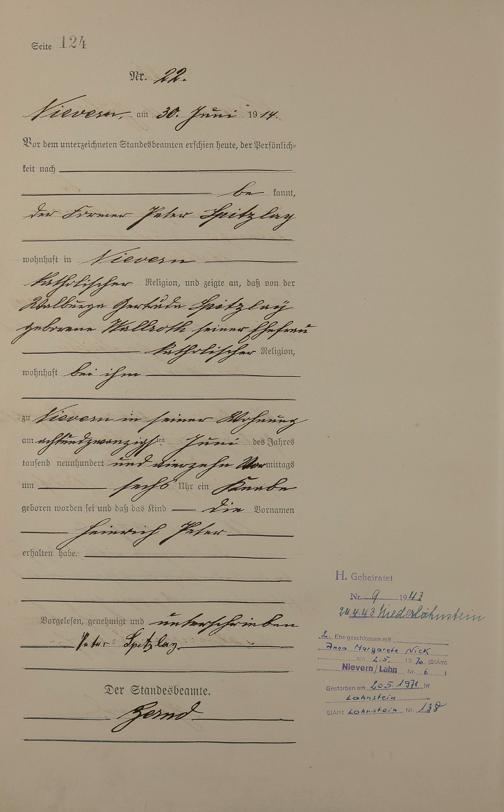 Seite 124
Nr. 22.
Nievern, am 30. Juni 1914.
Vor dem unterzeichneten Standesbeamten erschien heute, der Persönlich-
keit nach
be kannt,
der Former Peter Spitzlay
wohnhaft in Nievern
katholischer Religion, und zeigte an, daß von der
Walburga Gertrude Spitzlay
geborene Wallroth seiner Ehefrau
katholischer Religion,
wohnhaft bei ihm
zu Nievern in seiner Wohnung
am achtundzwanzigsten Juni des Jahres
tausend neunhundert und vierzehn Vormittags
um sechs Uhr ein Knabe
geboren worden sei und daß das Kind die Vornamen
Heinrich Peter
erhalten habe.
Vorgelesen, genehmigt und unterschrieben
Peter Spitzlay
Der Standesbeamte.
H. Geheiratet
Nr. 9 1943
24.4.43 Niederlahnstein
2. Ehe geschlossen mit
Anna Margarete Nick
am 2.5. 1970 StAmt
Nievern/Lahn Nr. 6
Gestorben am 20.5.1971 in
Lahnstein
StAmt Lahnstein Nr. 138